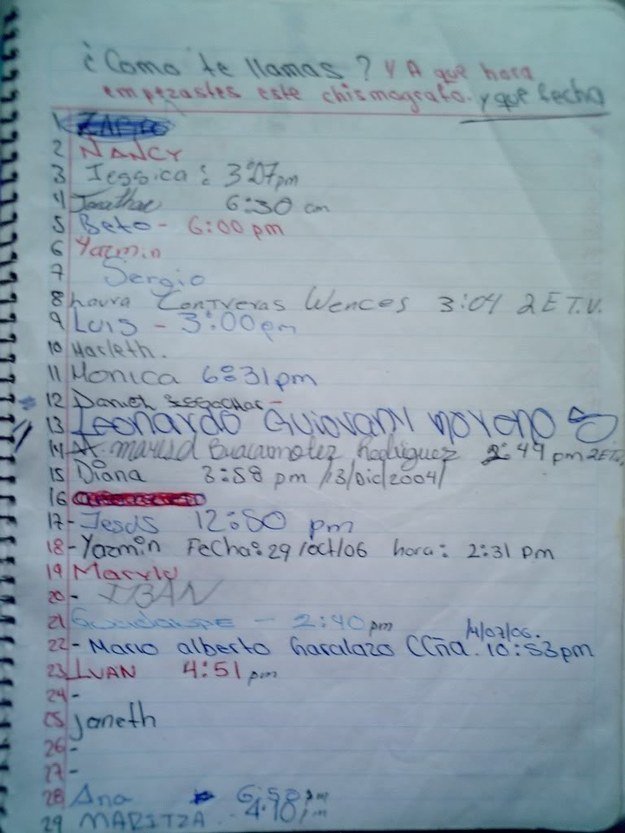 ¿Como te llamas? Y A que hora
empezastes este chismografo. y que fecha
1
2 NANCY
3 Jessica: 3:07pm
4 Jonathan 6:30 am
5 Beto - 6:00 pm
6 Yazmin
7 Sergio
8 Laura Contreras Wences 3:04 2E T.V.
9 Luis - 3:00pm
10 Marleth.
11 Monica 6:31pm
12 Daniel
13 Leonardo Guiovani moreno
14 Rodriguez 2:44 pm
15 Diana 3:58 pm /13/Dic/2004/
16
17- Jesus 12:50 pm
18- Yazmin Fecha: 29/oct/06 hora: 2:31 pm
19 Maryly
20- IBAN
21 Guadalupe - 2:40 pm
14/07/06.
22- Mario alberto 10:53pm
23 IVAN 4:51 pm
24-
25 Janeth
26-
27-
28 Ana 6:58 pm
29 MARITZA - 4:48 pm